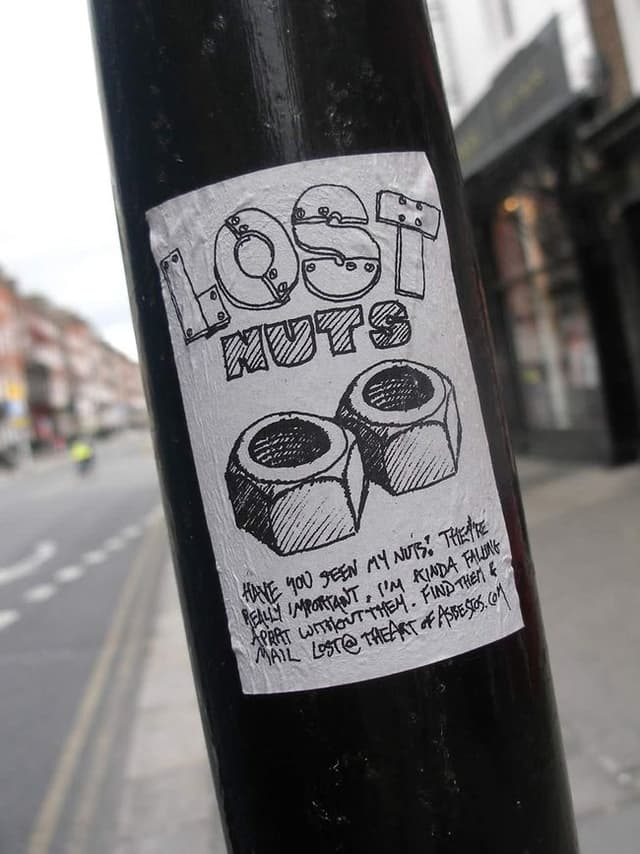 LOST
NUTS
HAVE YOU SEEN MY NUTS? THEY'RE
REALLY IMPORTANT. I'M KINDA FALLING
APART WITHOUT THEM. FIND THEM &
MAIL LOST@THEARTOFASBESTOS.COM